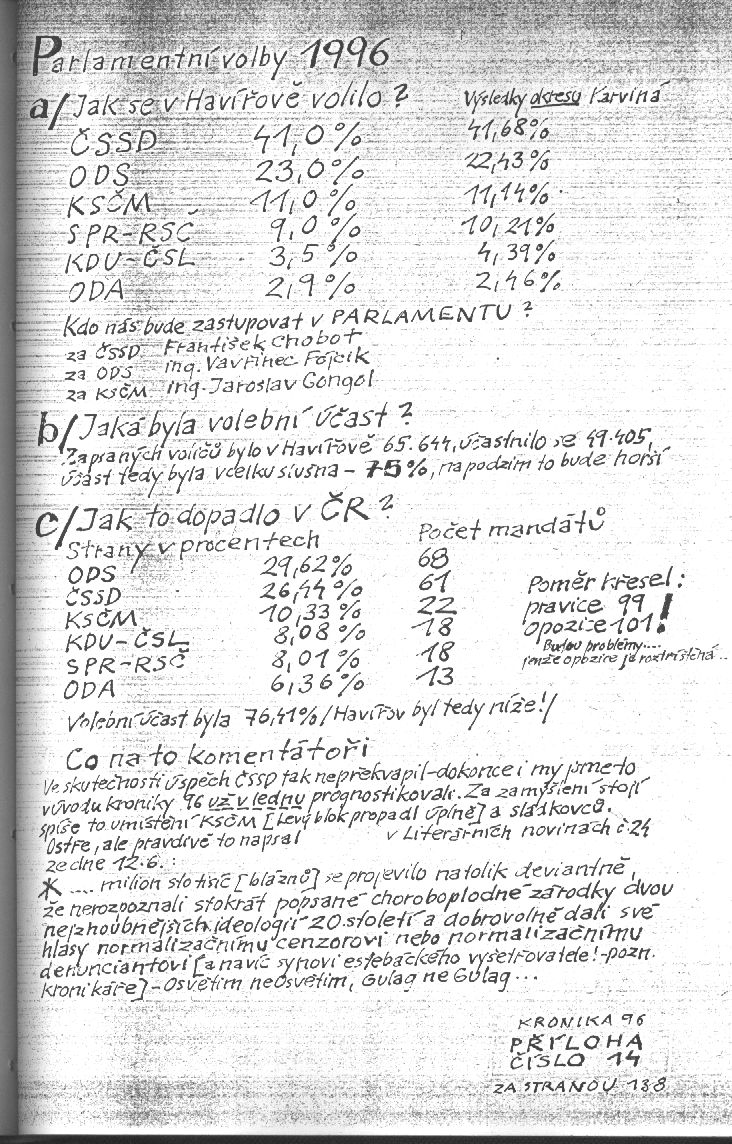 Parlamentní volby 1996
a/ Jak se v Havířově volilo? Výsledky okresu Karviná
ČSSD 41,0% 41,68%
ODS 23,0% 22,43%
KSČM 11,0% 11,14%
SPR-RSČ 9,0% 10,21%
KDU-ČSL 3,5% 4,39%
ODA 2,9% 2,46%
Kdo nás bude zastupovat v PARLAMENTU?
za ČSSD František Chobot
za ODS ing. Vavřinec Fójcik
za KSČM ing. Jaroslav Gongol
b/ Jaká byla volební účast?
Zapsaných voličů bylo v Havířově 65.644, účastnilo se 49.405,
účast tedy byla vcelku slušná - 75%, na podzim to bude horší
c/ Jak to dopadlo v ČR?
Strany v procentech Počet mandátů
ODS 29,62% 68
ČSSD 26,44% 61
KSČM 10,33% 22
KDU-ČSL 8,08% 18
SPR-RSČ 8,01% 18
ODA 6,36% 13
Poměr křesel:
pravice 99
opozice 101!
Budou problémy....
jenže opozice je roztříštěná...
Volební účast byla 76,41% /Havířov byl tedy níže!/
Co na to komentátoři
Ve skutečnosti úspěch ČSSD tak nepřekvapil - dokonce i my jsme to
v úvodu kroniky 96 už v lednu prognostikovali. Za zamyšlení stojí
spíše to umístění KSČM [Levý blok propadl úplně] a sládkovců.
Ostře, ale pravdivě to napsal v Literárních novinách č.24
ze dne 12.6.:
* .... milion sto tisíc [bláznů] se projevilo natolik deviantně,
že nerozpoznali stokrát popsané choroboplodné zárodky dvou
nejzhoubnějších ideologií 20. století a dobrovolně dali své
hlasy normalizačnímu cenzorovi nebo normalizačnímu
denunciantovi [a navíc synovi estebáckého vyšetřovatele! - pozn.
kronikáře] - Osvětim neOsvětim, Gulag ne Gulag...
KRONIKA 96
PŘÍLOHA
ČÍSLO 14
ZA STRANOU 188